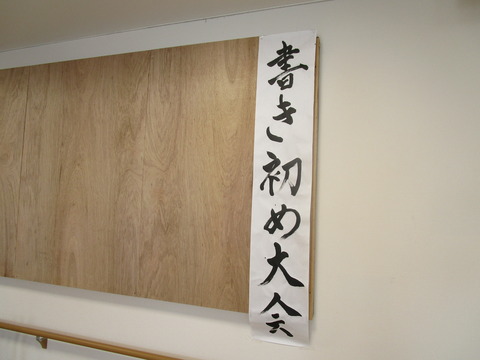 書き初め大会